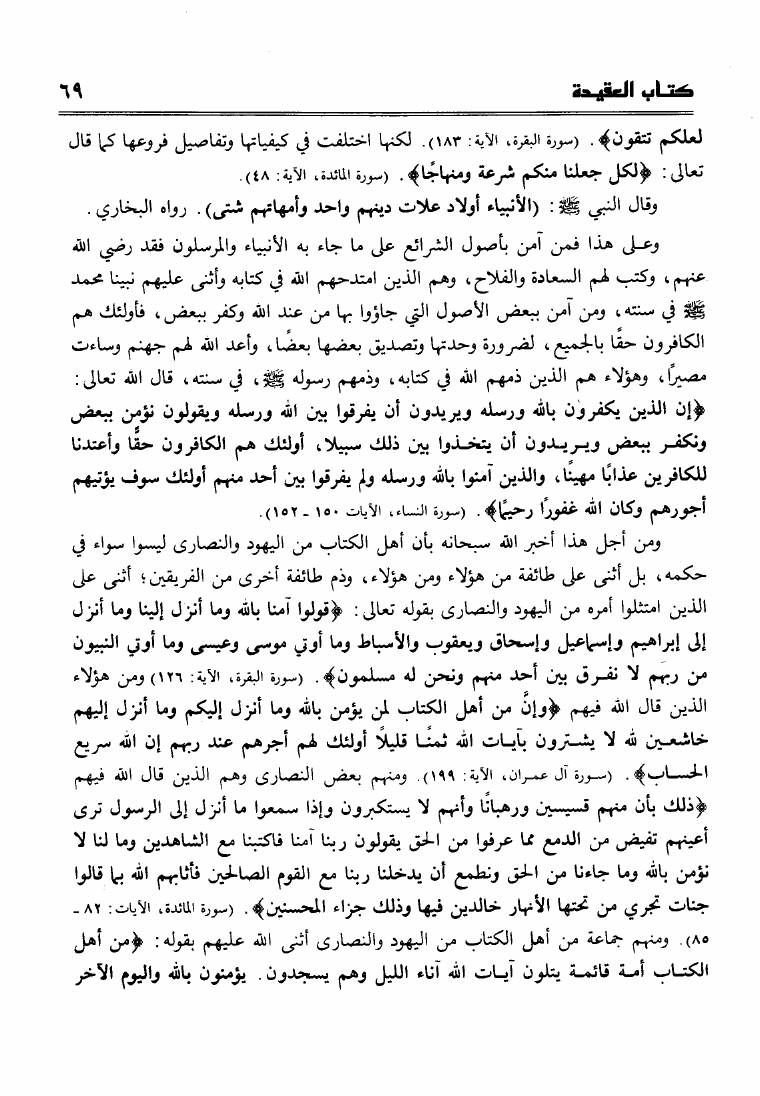 كتاب العقيدة ٦٩
لعلكم تتقون﴾. (سورة البقرة، الآية: ١٨٣). لكنها اختلفت في كيفياتها وتفاصيل فروعها كما قال
تعالى: ﴿لكل جعلنا منكم شرعة ومنهاجًا﴾. (سورة المائدة، الآية: ٤٨).
وقال النبي ﷺ: (الأنبياء أولاد علات دينهم واحد وأمهاتهم شتى). رواه البخاري.
وعلى هذا فمن آمن بأصول الشرائع على ما جاء به الأنبياء والمرسلون فقد رضي الله
عنهم، وكتب لهم السعادة والفلاح، وهم الذين امتدحهم الله في كتابه وأثنى عليهم نبينا محمد
ﷺ في سنته، ومن آمن ببعض الأصول التي جاؤوا بها من عند الله وكفر ببعض، فأولئك هم
الكافرون حقًا بالجميع، لضرورة وحدتها وتصديق بعضها بعضًا، وأعد الله لهم جهنم وساءت
مصيرًا، وهؤلاء هم الذين ذمهم الله في كتابه، وذمهم رسوله ﷺ، في سنته، قال الله تعالى:
﴿إن الذين يكفرون بالله ورسله ويريدون أن يفرقوا بين الله ورسله ويقولون نؤمن ببعض
ونكفر ببعض ويريدون أن يتخذوا بين ذلك سبيلا، أولئك هم الكافرون حقًّا وأعتدنا
للكافرين عذابًا مهينًا، والذين آمنوا بالله ورسله ولم يفرقوا بين أحد منهم أولئك سوف يؤتيهم
أجورهم وكان الله غفورًا رحيمًا﴾. (سورة النساء، الآيات ١٥٠ ـ ١٥٢).
ومن أجل هذا أخبر الله سبحانه بأن أهل الكتاب من اليهود والنصارى ليسوا سواء في
حكمه، بل أثنى على طائفة من هؤلاء ومن هؤلاء، وذم طائفة أخرى من الفريقين؛ أثنى على
الذين امتثلوا أمره من اليهود والنصارى بقوله تعالى: ﴿قولوا آمنا بالله وما أنزل إلينا وما أنزل
إلى إبراهيم وإسماعيل وإسحاق ويعقوب والأسباط وما أوتي موسى وعيسى وما أوتي النبيون
من ربهم لا نفرق بين أحد منهم ونحن له مسلمون﴾. (سورة البقرة، الآية: ١٢٦) ومن هؤلاء
الذين قال الله فيهم ﴿وإنَّ من أهل الكتاب لمن يؤمن بالله وما أنزل إليكم وما أنزل إليهم
خاشعين لله لا يشترون بآيات الله ثمنًا قليلًا أولئك لهم أجرهم عند ربهم إن الله سريع
الحساب﴾. (سورة آل عمران، الآية: ١٩٩). ومنهم بعض النصارى وهم الذين قال الله فيهم
﴿ذلك بأن منهم قسيسين ورهبانًا وأنهم لا يستكبرون وإذا سمعوا ما أنزل إلى الرسول ترى
أعينهم تفيض من الدمع مما عرفوا من الحق يقولون ربنا آمنا فاكتبنا مع الشاهدين وما لنا لا
نؤمن بالله وما جاءنا من الحق ونطمع أن يدخلنا ربنا مع القوم الصالحين فأثابهم الله بما قالوا
جنات تجري من تحتها الأنهار خالدين فيها وذلك جزاء المحسنين﴾. (سورة المائدة، الآيات: ٨٢ ـ
٨٥). ومنهم جماعة من أهل الكتاب من اليهود والنصارى أثنى الله عليهم بقوله: ﴿من أهل
الكتاب أمة قائمة يتلون آيات الله آناء الليل وهم يسجدون. يؤمنون بالله واليوم الآخر